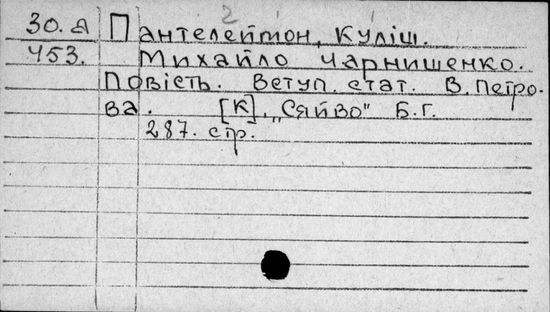 2
30.А Пантелеймон, Куліш.
453. Михайло Чарнишенко.
Повість. Вступ. стат. В. Петро-
ва. [К], „Сяйво" Б.Г.
287. стр.